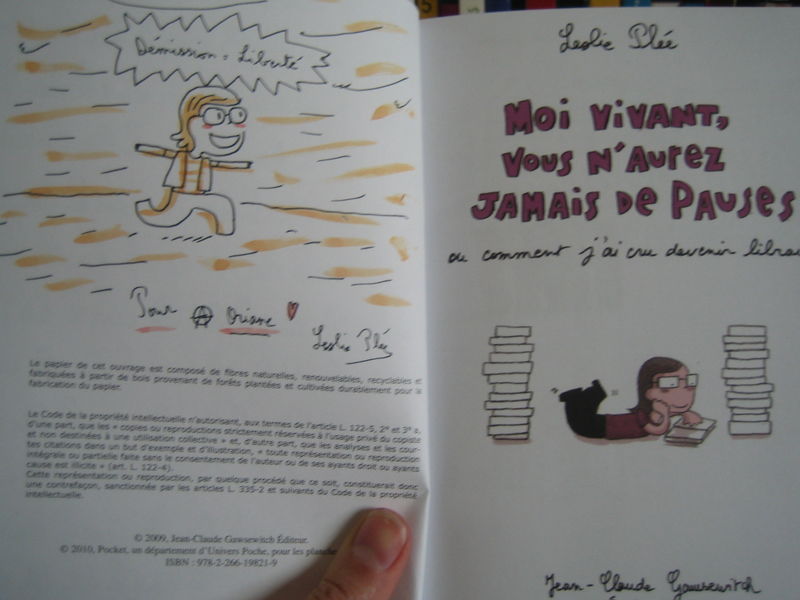 Démission = Liberté
Pour Ⓐ Oriane
Leslie Plée
Le papier de cet ouvrage est composé de fibres naturelles, renouvelables, recyclables et
fabriquées à partir de bois provenant de forêts plantées et cultivées durablement pour la
fabrication du papier.
Le Code de la propriété intellectuelle n'autorisant, aux termes de l'article L. 122-5, 2° et 3° a,
d'une part, que les « copies ou reproductions strictement réservées à l'usage privé du copiste
et non destinées à une utilisation collective » et, d'autre part, que les analyses et les cour-
tes citations dans un but d'exemple et d'illustration, « toute représentation ou reproduction
intégrale ou partielle faite sans le consentement de l'auteur ou de ses ayants droit ou ayants
cause est illicite » (art. L. 122-4).
Cette représentation ou reproduction, par quelque procédé que ce soit, constituerait donc
une contrefaçon, sanctionnée par les articles L. 335-2 et suivants du Code de la propriété
intellectuelle.
© 2009, Jean-Claude Gawsewitch Éditeur.
© 2010, Pocket, un département d'Univers Poche, pour les
ISBN : 978-2-266-19821-9
Leslie Plée
Moi vivant,
vous n'aurez
jamais de pauses
ou comment j'ai cru devenir
Jean-Claude Gawsewitch